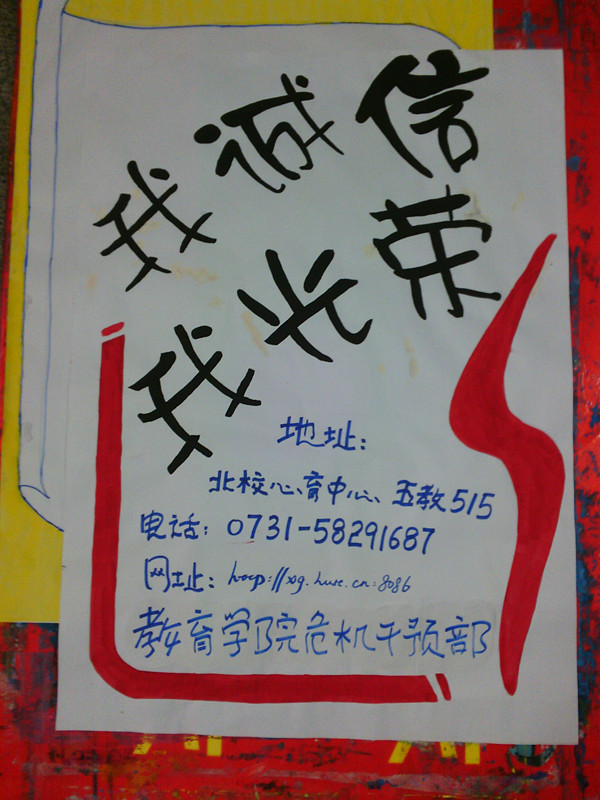 我诚信
我光荣
地址:
北校心育中心、五教515
电话: 0731-58291687
网址: http://xg.hnse.cn:8086
教育学院危机干预部